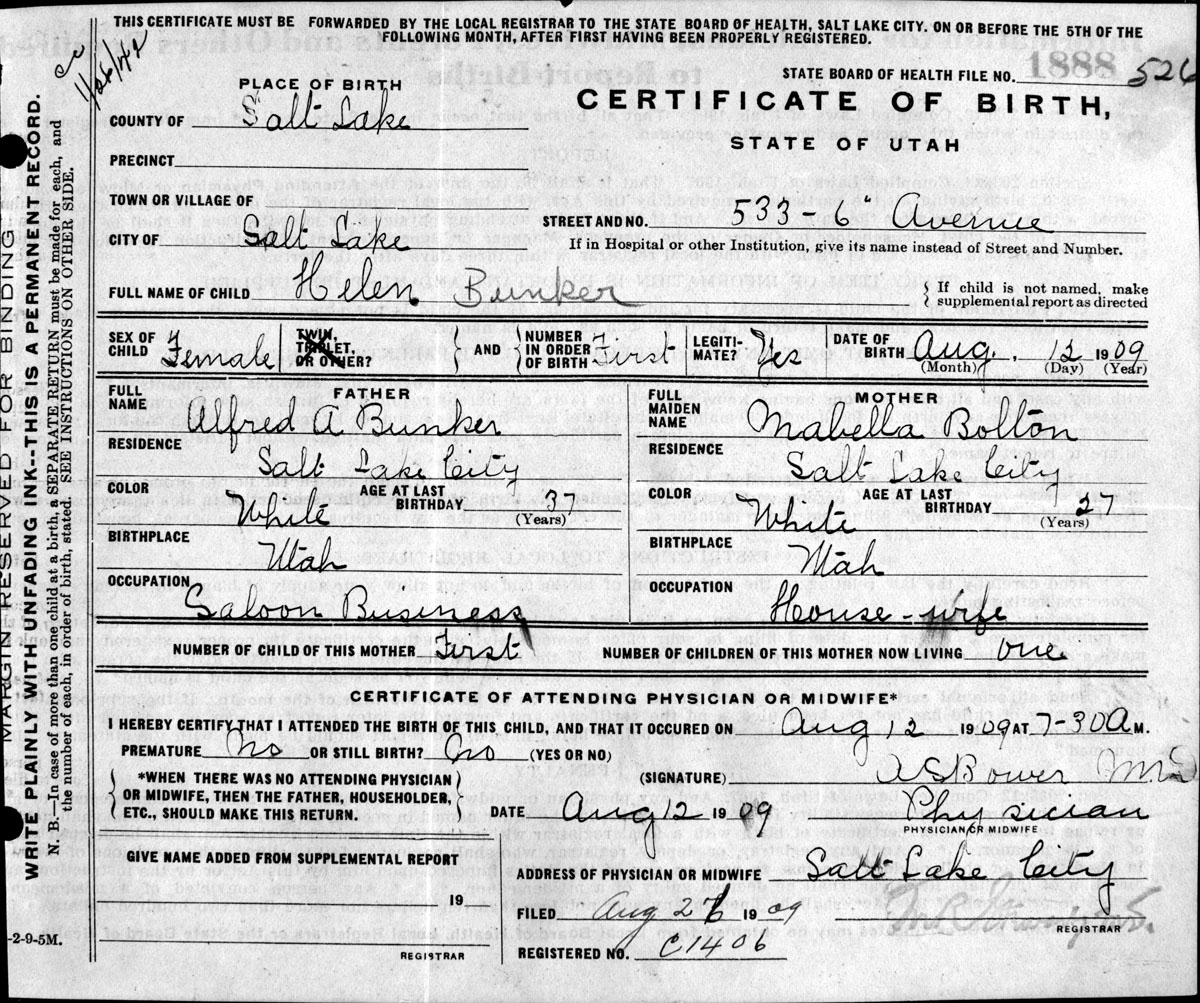 THIS CERTIFICATE MUST BE FORWARDED BY THE LOCAL REGISTRAR TO THE STATE BOARD OF HEALTH, SALT LAKE CITY, ON OR BEFORE THE 5TH OF THE
FOLLOWING MONTH, AFTER FIRST HAVING BEEN PROPERLY REGISTERED.
STATE BOARD OF HEALTH FILE NO. 1888 526
PLACE OF BIRTH
CERTIFICATE OF BIRTH,
COUNTY OF Salt Lake
STATE OF UTAH
PRECINCT
TOWN OR VILLAGE OF
STREET AND NO. 533 - 6" Avenue
CITY OF Salt Lake
If in Hospital or other Institution, give its name instead of Street and Number.
FULL NAME OF CHILD Helen Bunker
{ If child is not named, make
supplemental report as directed
SEX OF CHILD Female
TWIN, TRIPLET, OR OTHER? } AND { NUMBER IN ORDER OF BIRTH First
LEGITI- MATE? Yes
DATE OF BIRTH Aug. 12 1909
(Month) (Day) (Year)
FATHER
FULL NAME Alfred A Bunker
RESIDENCE
Salt Lake City
COLOR White AGE AT LAST BIRTHDAY 37
(Years)
BIRTHPLACE
Utah
OCCUPATION
Saloon Business
MOTHER
FULL MAIDEN NAME Mabella Bolton
RESIDENCE
Salt Lake City
COLOR White AGE AT LAST BIRTHDAY 27
(Years)
BIRTHPLACE
Utah
OCCUPATION
House-wife
NUMBER OF CHILD OF THIS MOTHER First NUMBER OF CHILDREN OF THIS MOTHER NOW LIVING one
CERTIFICATE OF ATTENDING PHYSICIAN OR MIDWIFE*
I HEREBY CERTIFY THAT I ATTENDED THE BIRTH OF THIS CHILD, AND THAT IT OCCURED ON Aug 12 1909 AT 7-30 A M.
PREMATURE No OR STILL BIRTH? No (YES OR NO)
*WHEN THERE WAS NO ATTENDING PHYSICIAN
OR MIDWIFE, THEN THE FATHER, HOUSEHOLDER,
ETC., SHOULD MAKE THIS RETURN.
(SIGNATURE) Bower M.D
DATE Aug 12 1909 Physician
PHYSICIAN OR MIDWIFE
GIVE NAME ADDED FROM SUPPLEMENTAL REPORT
19
REGISTRAR
ADDRESS OF PHYSICIAN OR MIDWIFE Salt Lake City
FILED Aug 26 1909
REGISTRAR
REGISTERED NO. C1406
-2-9-5M.
MARGIN RESERVED FOR BINDING
WRITE PLAINLY WITH UNFADING INK--THIS IS A PERMANENT RECORD.
N. B.—In case of more than one child at a birth, a SEPARATE RETURN must be made for each, and
the number of each, in order of birth, stated. SEE INSTRUCTIONS ON OTHER SIDE.